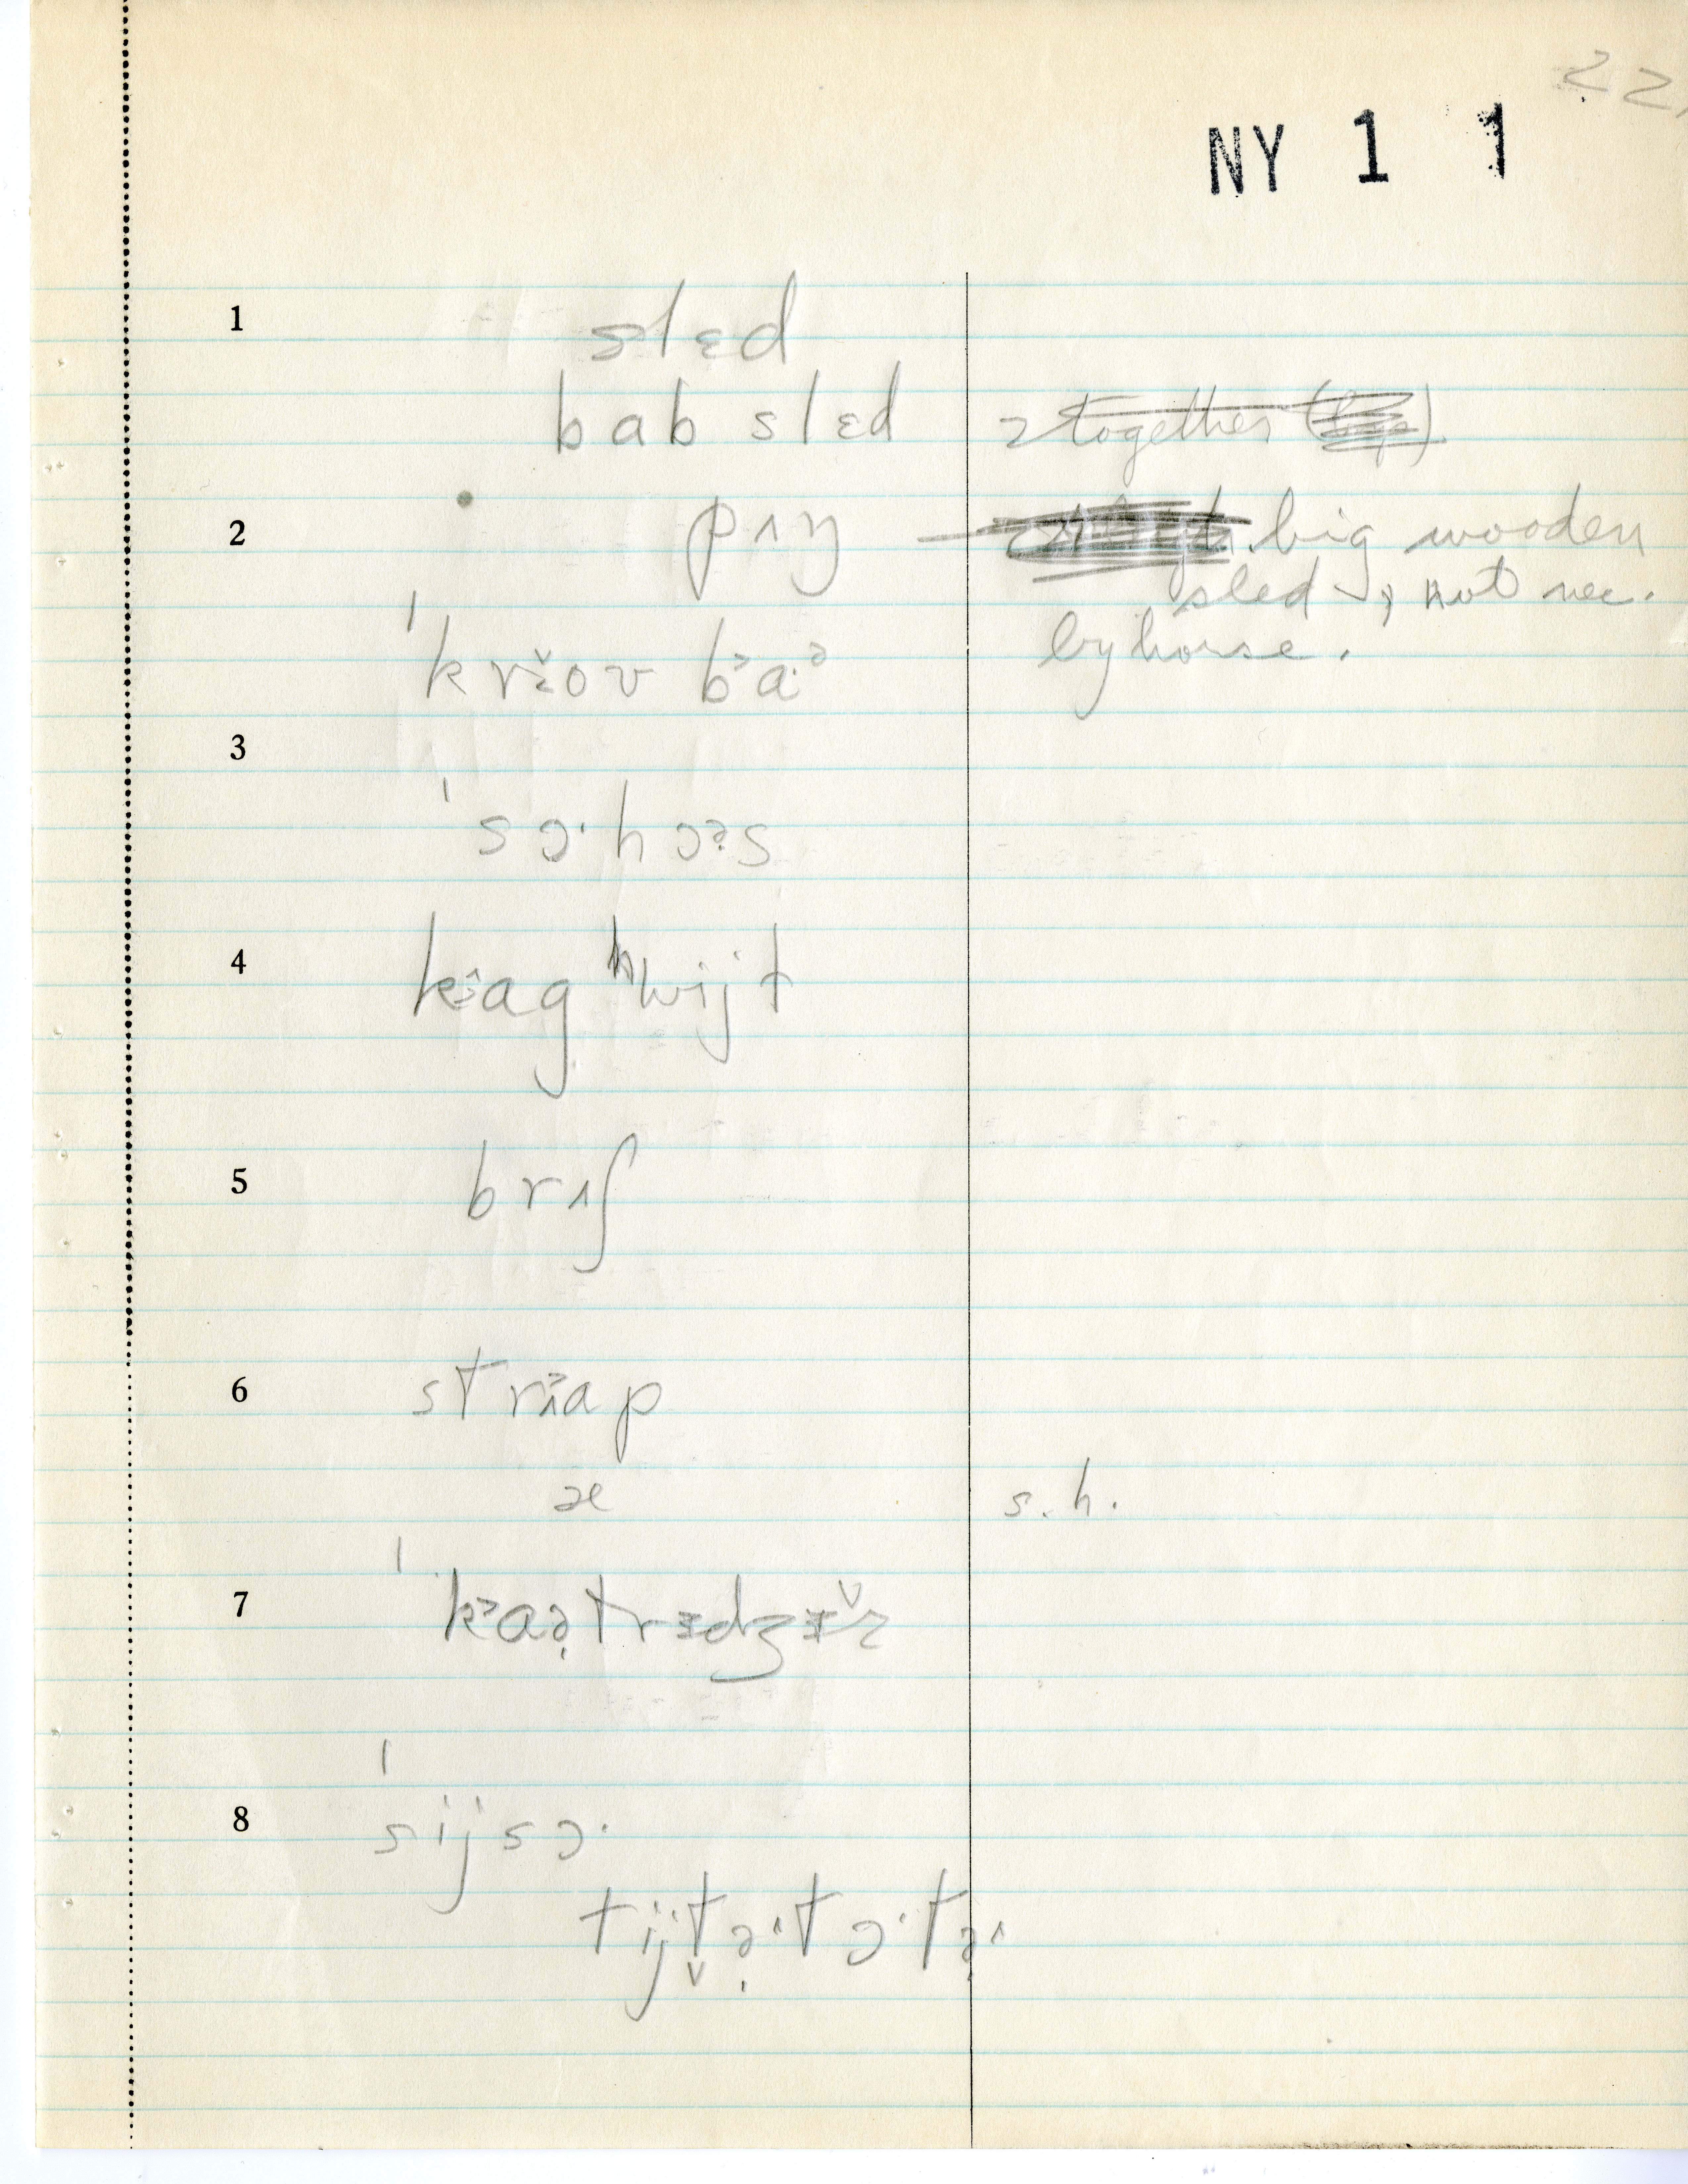 22.
NY 1 1
1
slɛd
bab slɛd
~~2 together~~
2
pɪŋ
big wooden
sled, not nec.
by horse.
ˈkrɪ̌ov b˃a·ə
3
ˈsɔ·hɔəs
4
k˃ag ʰwijt
5
brɪʃ
6
str˃ap
æ
s.h.
7
ˈk˃aə̣trɪdʒɪ̌z
8
ˈsijsɔ·
tijt̬ə̣·tɔ·tə̣·